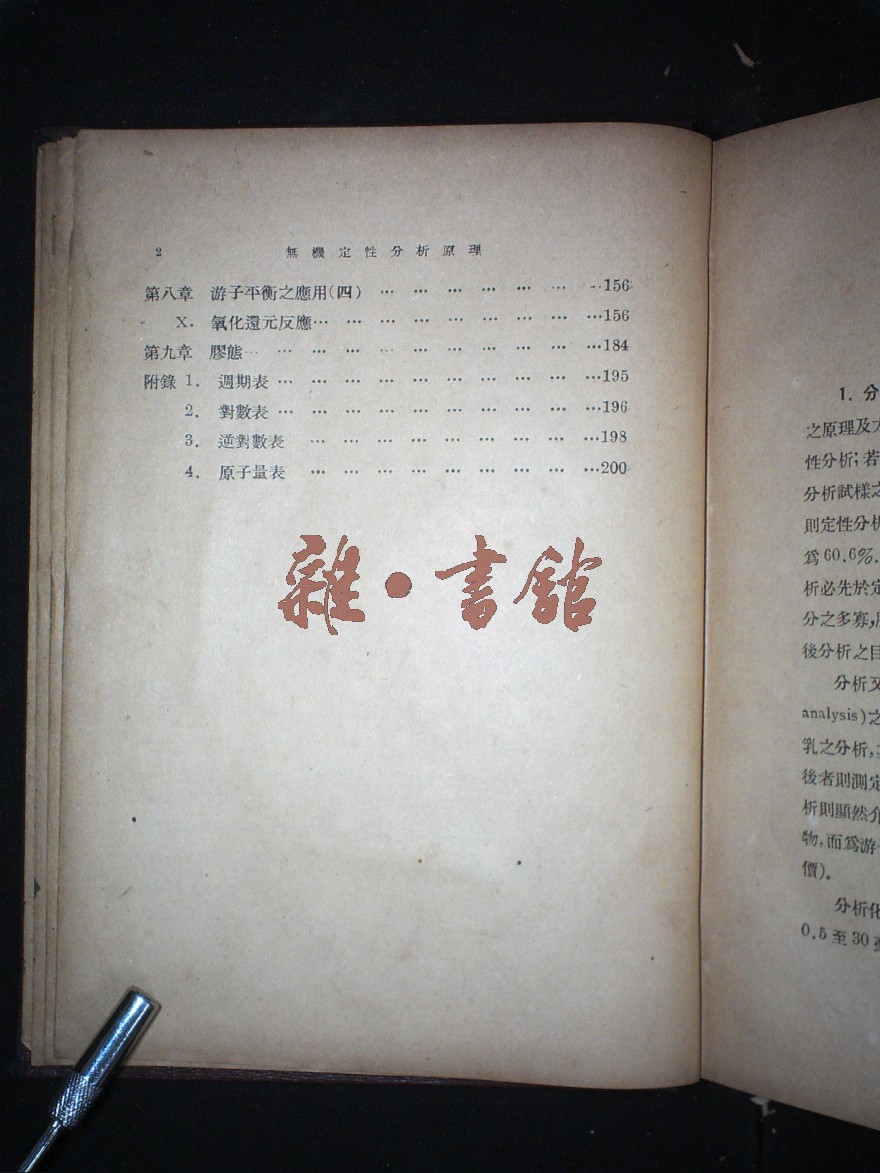 2 無機定性分析原理
第八章 游子平衡之應用(四) … … … … … … …156
X. 氧化還元反應… … … … … … … … …156
第九章 膠態… … … … … … … … … … …184
附錄 1. 週期表 … … … … … … … … … …195
2. 對數表 … … … … … … … … … …196
3. 逆對數表 … … … … … … … … …198
4. 原子量表 … … … … … … … … …200
雜•書館
1. 分
之原理及
性分析;若
分析試樣之
則定性分析
爲60.6%.
析必先於定
分之多寡,
後分析之目
分析又
analysis)之
乳之分析,
後者則測定
析則顯然介
物,而爲游
價).
分析化
0.5至30